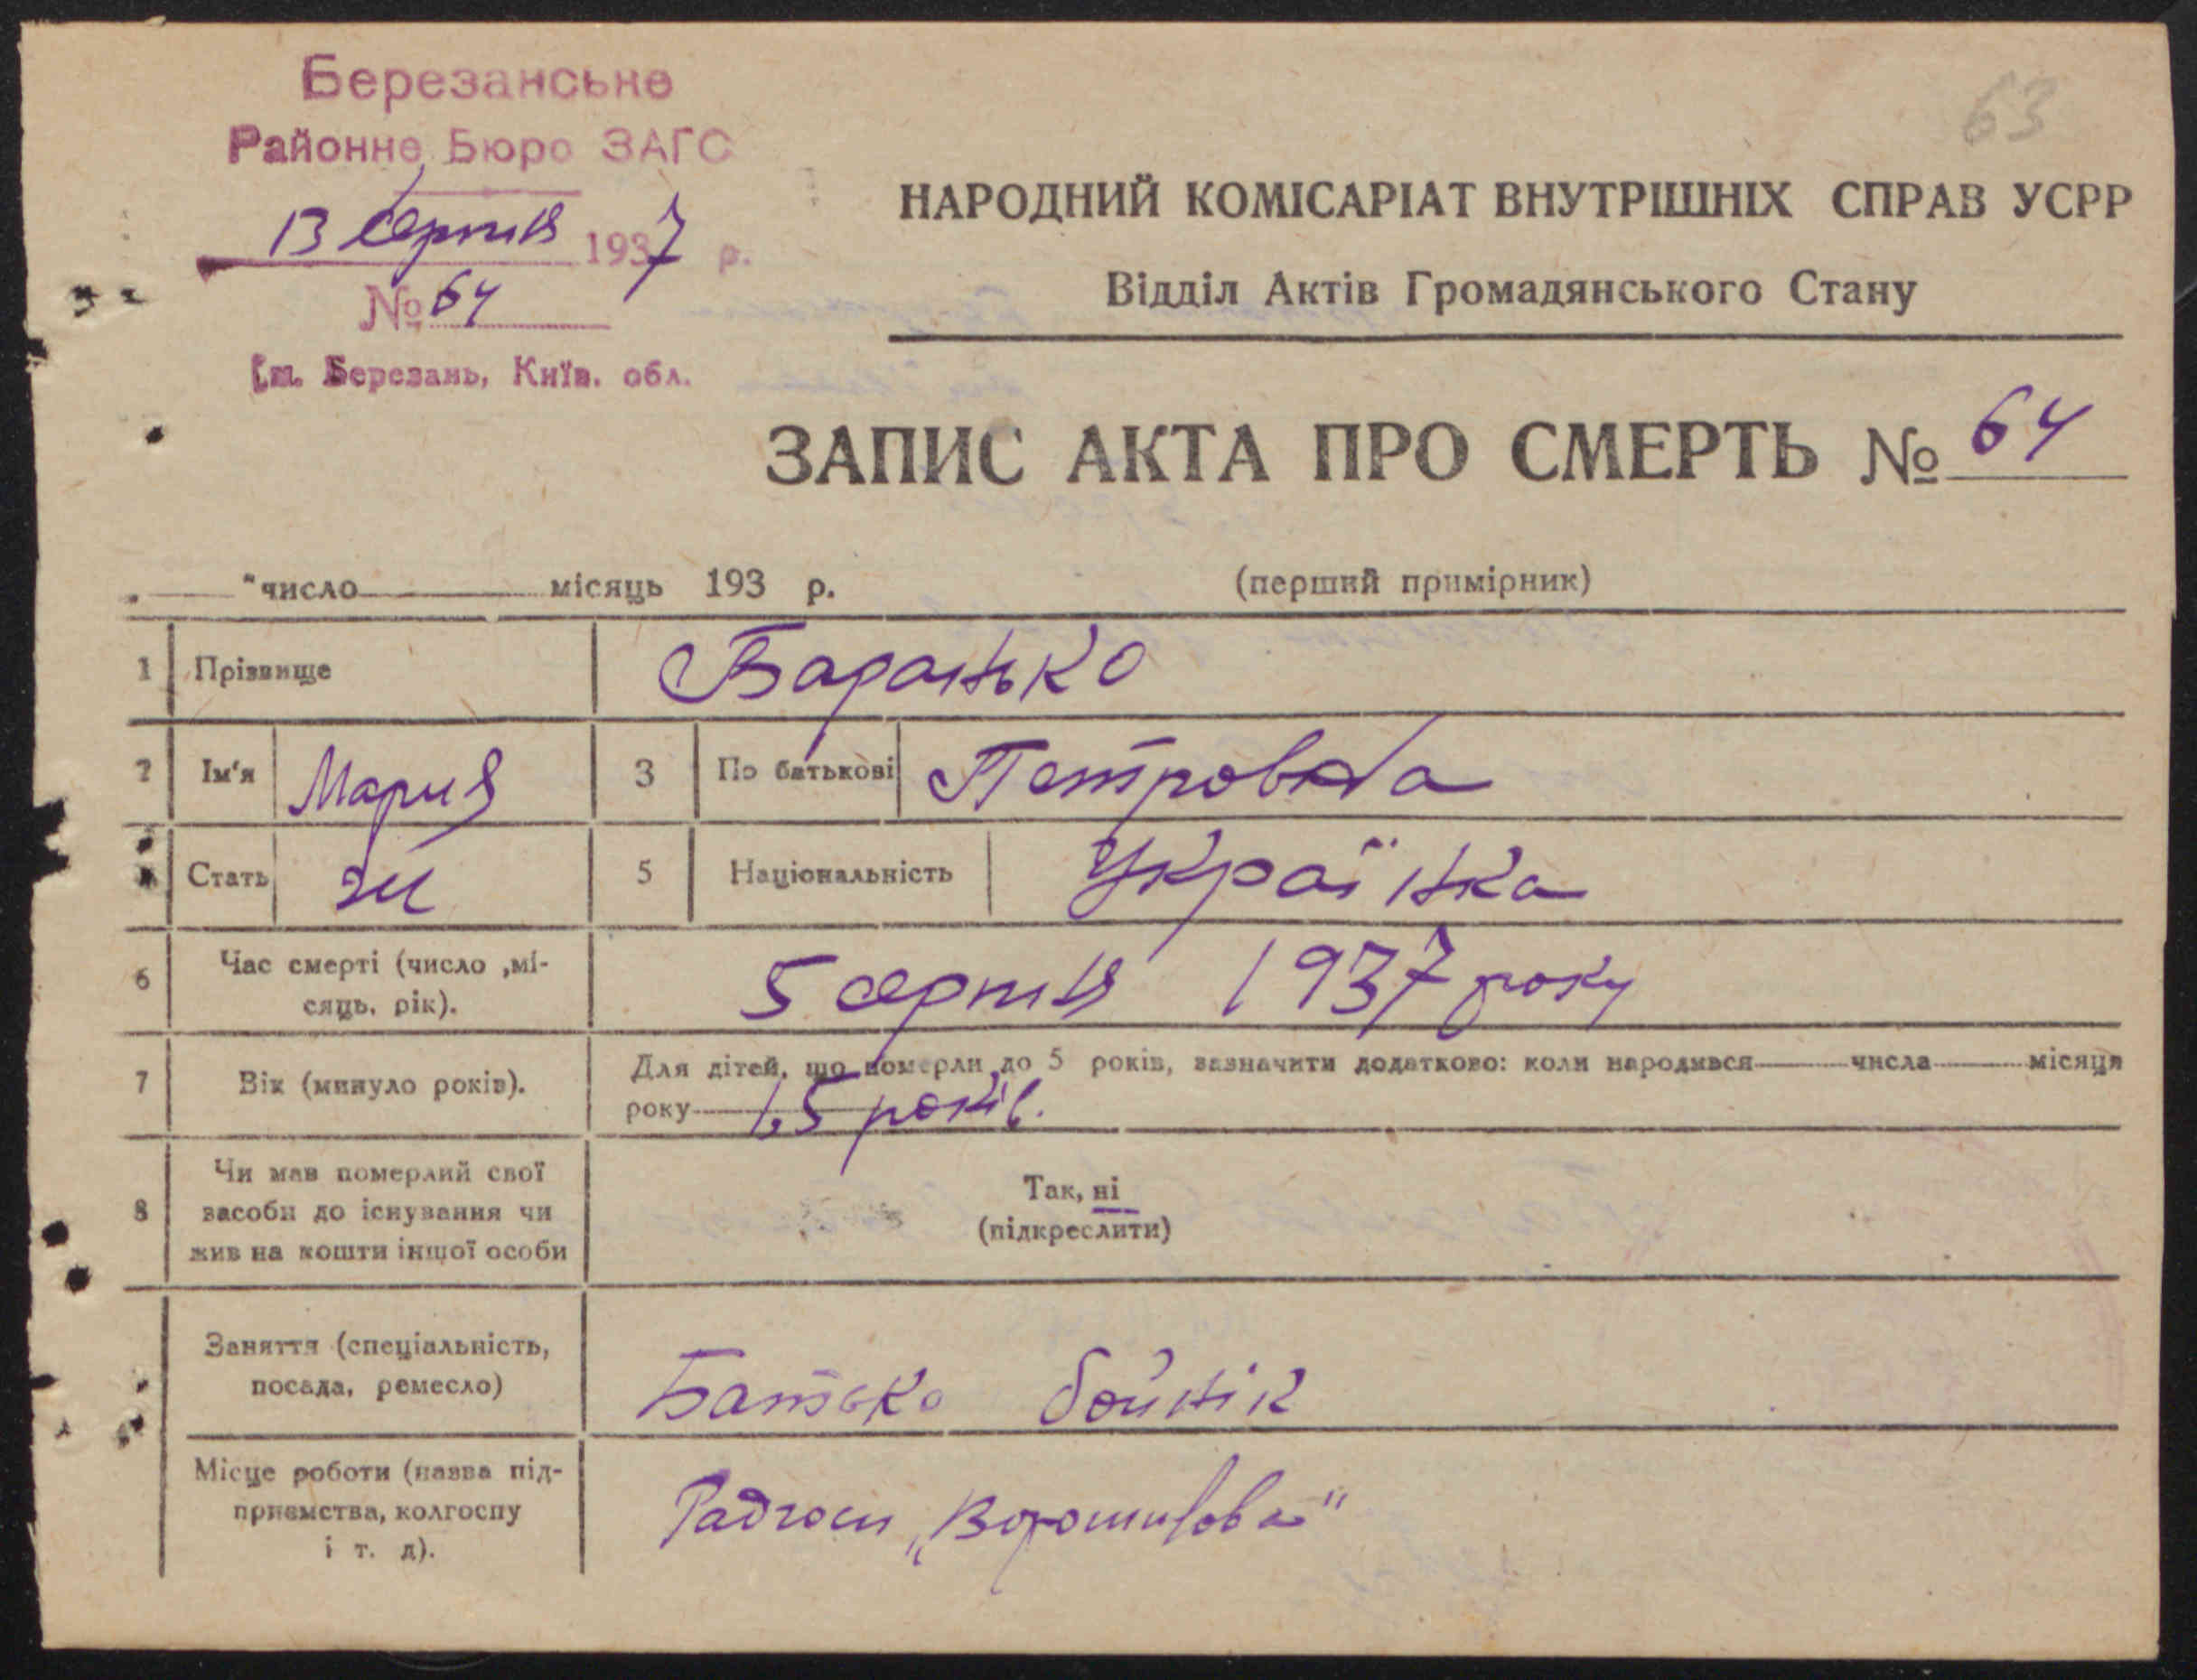 Березанське
Районне Бюро ЗАГС
13 серпня 1937 р.
№ 64
ст. Березань, Київ. обл.
63
НАРОДНИЙ КОМІСАРІАТ ВНУТРІШНІХ СПРАВ УСРР
Відділ Актів Громадянського Стану
ЗАПИС АКТА ПРО СМЕРТЬ № 64
„ “ число місяць 193 р. (перший примірник)
1 Прізвище Баранько
2 Ім'я Мария 3 По батькові Петровна
4 Стать ж 5 Національність Українка
6 Час смерті (число ,мі-
сяць, рік). 5 серпня 1937 року
7 Вік (минуло років). Для дітей, що померли до 5 років, зазначити додатково: коли народився числа місяця
року 1,5 років.
8 Чи мав померлий свої
засоби до існування чи
жив на кошти іншої особи
Так, ні
(підкреслити)
Заняття (спеціальність,
посада, ремесло) Батько бойнік
Місце роботи (назва під-
приємства, колгоспу
і т. д). Радгосп „Ворошилова"